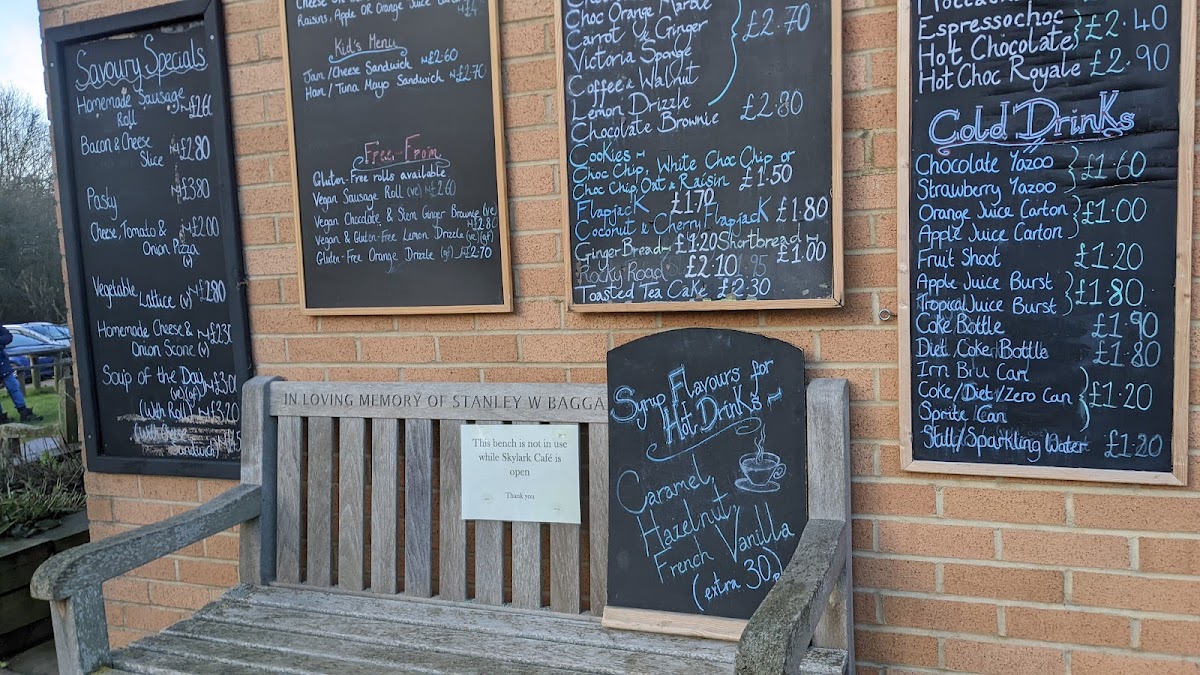 Savoury Specials
Homemade Sausage
Roll ~£2.60
Bacon & Cheese
Slice ~£2.80
Pasty ~£3.80
Cheese, Tomato & ~£2.00
Onion Pizza
(v)
Vegetable
Lattice (v) ~£2.80
Homemade Cheese & ~£2.30
Onion Scone (v)
Soup of the Day
(ve)(gf)
(With Roll)
(With Cheese
Sandwich)
Raisins, Apple OR Orange Juice
Kid's Menu
Jam/Cheese Sandwich ~£2.60
Ham/Tuna Mayo Sandwich ~£2.70
Free-From
Gluten-Free rolls available
Vegan Sausage Roll (ve) ~£2.60
Vegan Chocolate & Stem Ginger Brownie (ve)
~£2.80
Vegan & Gluten-Free Lemon Drizzle (ve)(gf)
Gluten-Free Orange Drizzle (gf) ~£2.70
Choc Orange Marble
Carrot & Ginger
Victoria Sponge
Coffee & Walnut
Lemon Drizzle
£2.70
Chocolate Brownie £2.80
Cookies ~
Choc Chip, White Choc Chip or
Choc Chip, Oat & Raisin £1.50
Flapjack £1.70
Coconut & Cherry Flapjack £1.80
Ginger Bread ~ £1.20 Shortbread ~ £1.00
Rocky Road £2.10
Toasted Tea Cake ~ £2.30
Espressochoc
Hot Chocolate £2.40
Hot Choc Royale £2.90
Cold Drinks
Chocolate Yazoo
Strawberry Yazoo £1.60
Orange Juice Carton
Apple Juice Carton £1.00
Fruit Shoot £1.20
Apple Juice Burst
Tropical Juice Burst £1.80
Coke Bottle £1.90
Diet Coke Bottle £1.80
Irn Bru Can
Coke/Diet/Zero Can
Sprite/Can
£1.20
Still/Sparkling Water £1.20
IN LOVING MEMORY OF STANLEY W BAGGA
This bench is not in use
while Skylark Café is
open
Thank you
Syrup Flavours for
Hot Drinks ~
Caramel,
Hazelnut,
French Vanilla
(extra 30p)